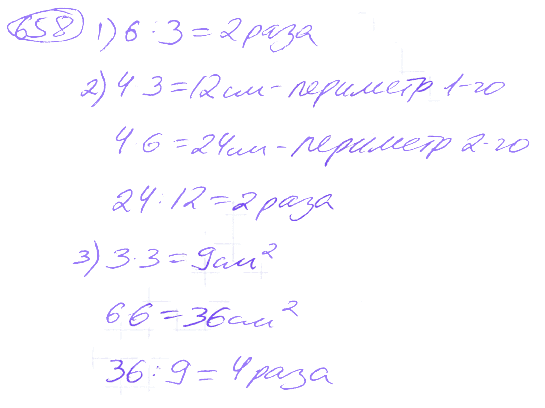 658 1) 6 : 3 = 2 раза
2) 4 3 = 12 см - периметр 1-го
4 6 = 24 см - периметр 2-го
24 : 12 = 2 раза
3) 3·3 = 9 см²
6·6 = 36 см²
36 : 9 = 4 раза